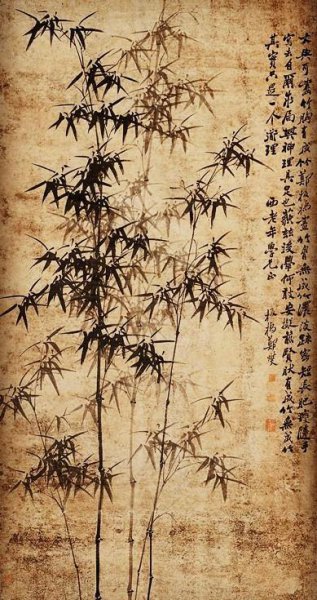 文與可畫竹胸有成竹鄭板橋畫竹胸無成竹濃淡疎密短長肥瘦隨手
寫去自爾成局其神理具足也藐茲後學何敢妄擬前賢然有成竹無成竹
其實只是一个道理
酉老年學兄正
板橋鄭燮